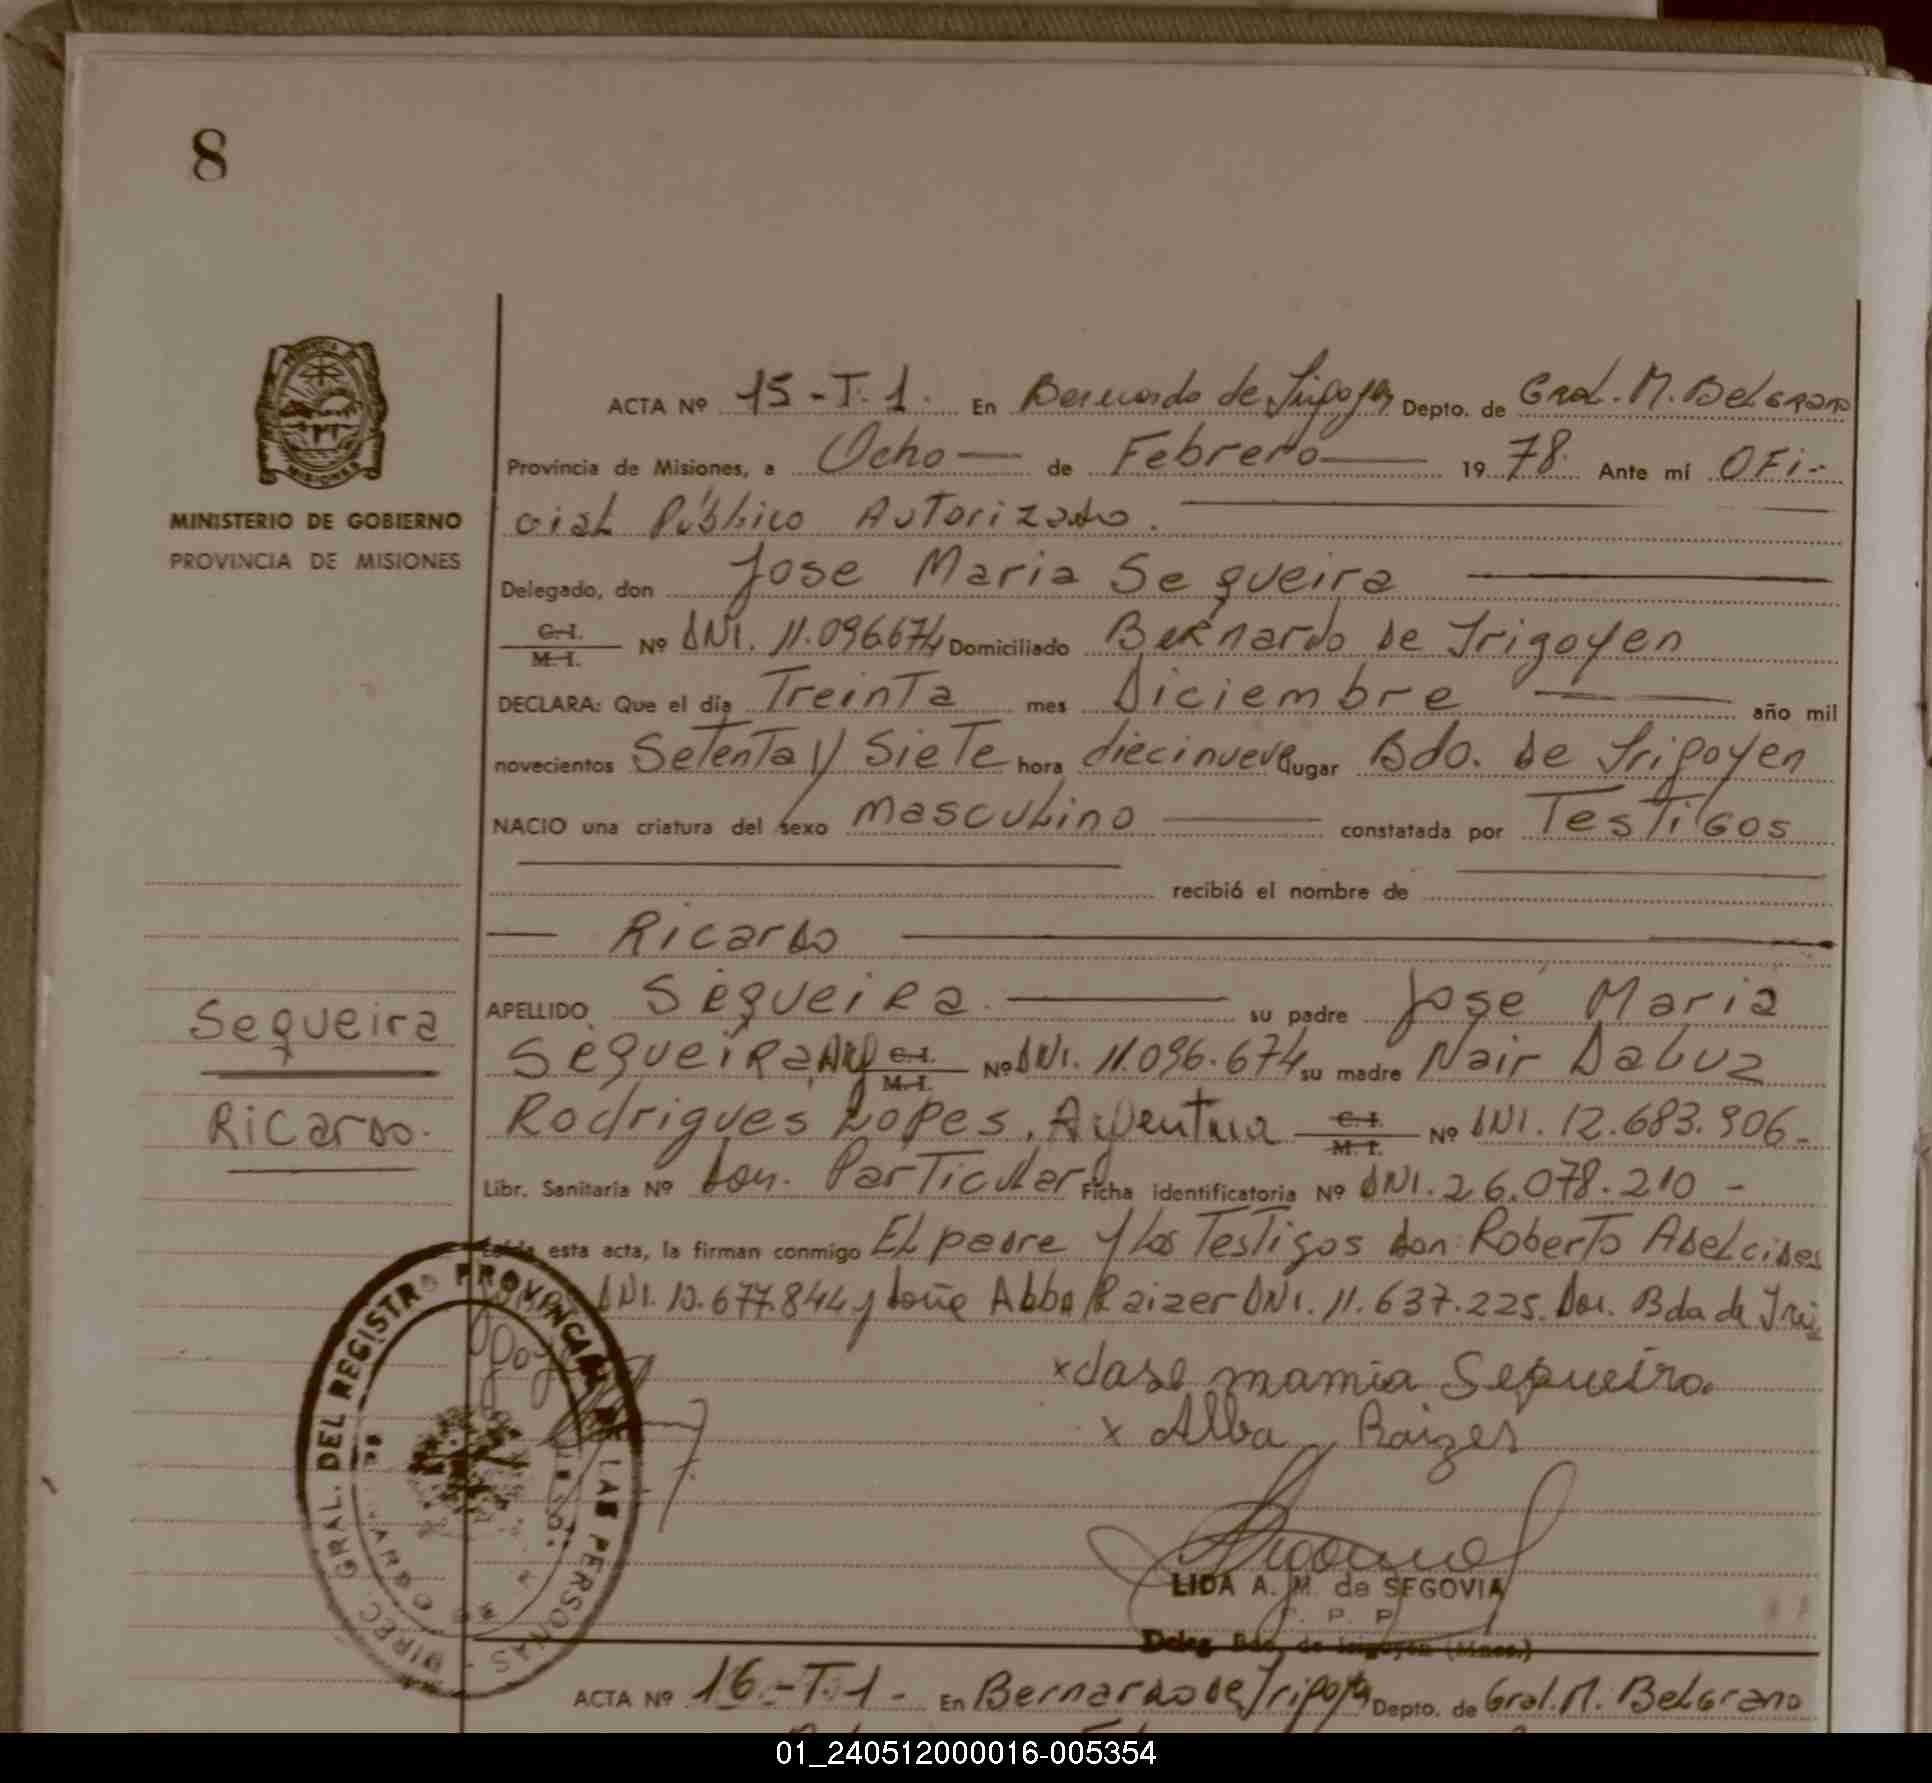 8
MINISTERIO DE GOBIERNO
PROVINCIA DE MISIONES
ACTA Nº 15-T.1. En Bernardo de Irigoyen Depto. de Gral. M. Belgrano
Provincia de Misiones, a Ocho de Febrero 19 78. Ante mí OFi-
cial Público Autorizado.
Delegado, don Jose Maria Sequeira
C. I. M. I. Nº DNI. 11.096674 Domiciliado Bernardo de Irigoyen
DECLARA: Que el día Treinta mes Diciembre año mil
novecientos Setenta y Siete hora diecinueve lugar Bdo. de Irigoyen
NACIO una criatura del sexo masculino constatada por Testigos
recibió el nombre de
Ricardo
APELLIDO Sequeira su padre José Maria
Sequeira, C. I. M. I. Nº DNI. 11.096.674 su madre Nair DaLuz
Rodrigues Lopes, Argentina C. I. M. I. Nº DNI. 12.683.906-
Libr. Sanitaria Nº Dom. Particular Ficha identificatoria Nº DNI. 26.078.210 -
Leída esta acta, la firman conmigo El padre y los Testigos don: Roberto Adelcides
DNI. 10.677.844 y doña Alba Raizer DNI. 11.637.225. Dom. Bdo de Iri
goyen
Sequeira
Ricardo.
x José maria Sequeira
x Alba Raizer
LIDA A. M. de SEGOVIA
Deleg. Bdo. de Irigoyen (Mnes.)
DIREC. GRAL. DEL REGISTRO PROVINCIAL DE LAS PERSONAS
ACTA Nº 16-T.1- En Bernardo de Irigoyen Depto. de Gral. M. Belgrano
01_240512000016-005354